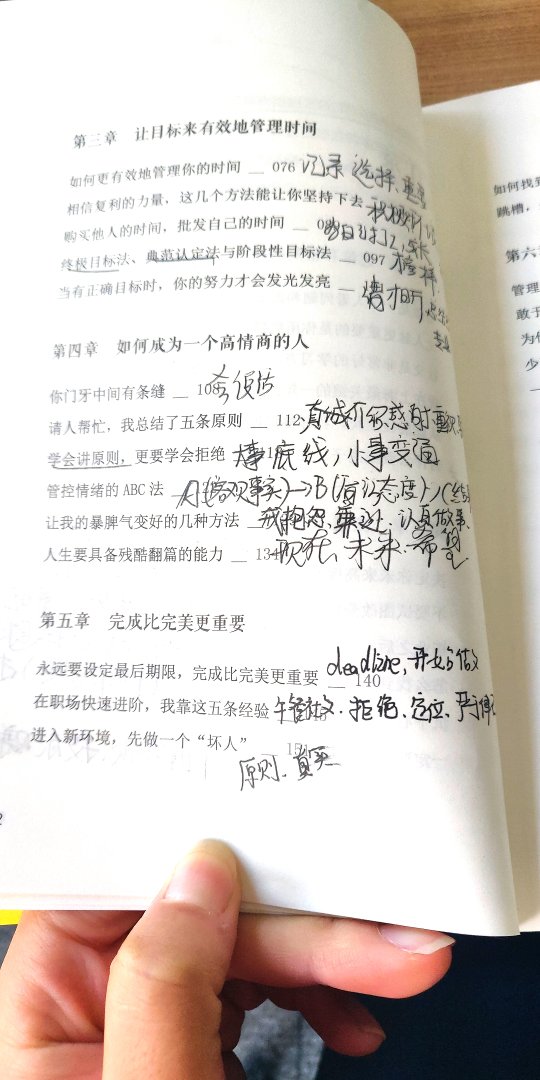 第三章 让目标来有效地管理时间
如何更有效地管理你的时间 — 076 记录 选择、重
相信复利的力量，这几个方法能让你坚持下去
购买他人的时间，批发自己的时间 — 08
终极目标法、典范认定法与阶段性目标法 — 097 榜样
当有正确目标时，你的努力才会发光发亮 —
第四章 如何成为一个高情商的人
你门牙中间有条缝 — 108
请人帮忙，我总结了五条原则 — 112 真诚
学会讲原则，更要学会拒绝 大事底线，小事变通
管控情绪的ABC法 — A(客观事实)→B(后认态度)
让我的暴脾气变好的几种方法 — 戒抱怨、认真做事、
人生要具备残酷翻篇的能力 — 134 现在、未来、希望
第五章 完成比完美更重要
永远要设定最后期限，完成比完美更重要 — 140 deadline,开始
在职场快速进阶，我靠这五条经验 拒绝、定位、
进入新环境，先做一个“坏人” — 151
原则、真实
如何找到
跳槽，
第六
管理
敢于
为什
少
2